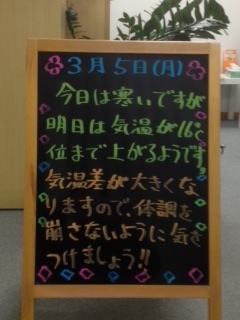 3月5日(月)
今日は寒いですが
明日は気温が16℃
位まで上がるようです。
気温差が大きくな
りますので、体調を
崩さないように気を
つけましょう!!